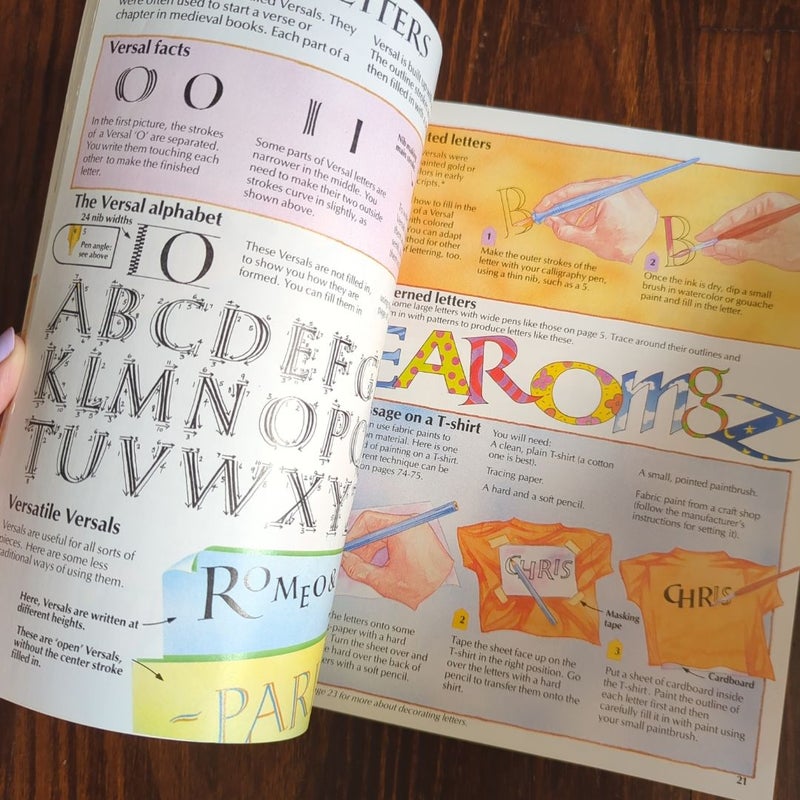 LETTERS
called Versals. They
were often used to start a verse or
chapter in medieval books. Each part of a
Versal is built up
The outline strokes
then filled in with
Versal facts
In the first picture, the strokes
of a Versal 'O' are separated.
You write them touching each
other to make the finished
letter.
Some parts of Versal letters are
narrower in the middle. You
need to make their two outside
strokes curve in slightly, as
shown above.
The Versal alphabet
24 nib widths
5
Pen angle:
see above
These Versals are not filled in,
to show you how they are
formed. You can fill them in
A B C D E F G
K L M N O P
T U V W X Y
Versatile Versals
Versals are useful for all sorts of
pieces. Here are some less
traditional ways of using them.
Here, Versals are written at
different heights.
These are 'open' Versals,
without the center stroke
filled in.
ROMEO &
~PAR
letters
were
painted gold or
in early
how to fill in the
of a Versal
with colored
You can adapt
for other
lettering, too.
B
1
Make the outer strokes of the
letter with your calligraphy pen,
using a thin nib, such as a 5.
B
2
Once the ink is dry, dip a small
brush in watercolor or gouache
paint and fill in the letter.
letters
some large letters with wide pens like those on page 5. Trace around their outlines and
in with patterns to produce letters like these.
EARomgZ
on a T-shirt
use fabric paints to
on material. Here is one
of painting on a T-shirt.
technique can be
on pages 74-75.
You will need:
A clean, plain T-shirt (a cotton
one is best).
Tracing paper.
A hard and a soft pencil.
A small, pointed paintbrush.
Fabric paint from a craft shop
(follow the manufacturer's
instructions for setting it).
the letters onto some
paper with a hard
Turn the sheet over and
hard over the back of
with a soft pencil.
CHRIS
Masking
tape
2
Tape the sheet face up on the
T-shirt in the right position. Go
over the letters with a hard
pencil to transfer them onto the
shirt.
CHRIS
Cardboard
3
Put a sheet of cardboard inside
the T-shirt. Paint the outline of
each letter first and then
carefully fill it in with paint using
your small paintbrush.
page 23 for more about decorating letters.
21